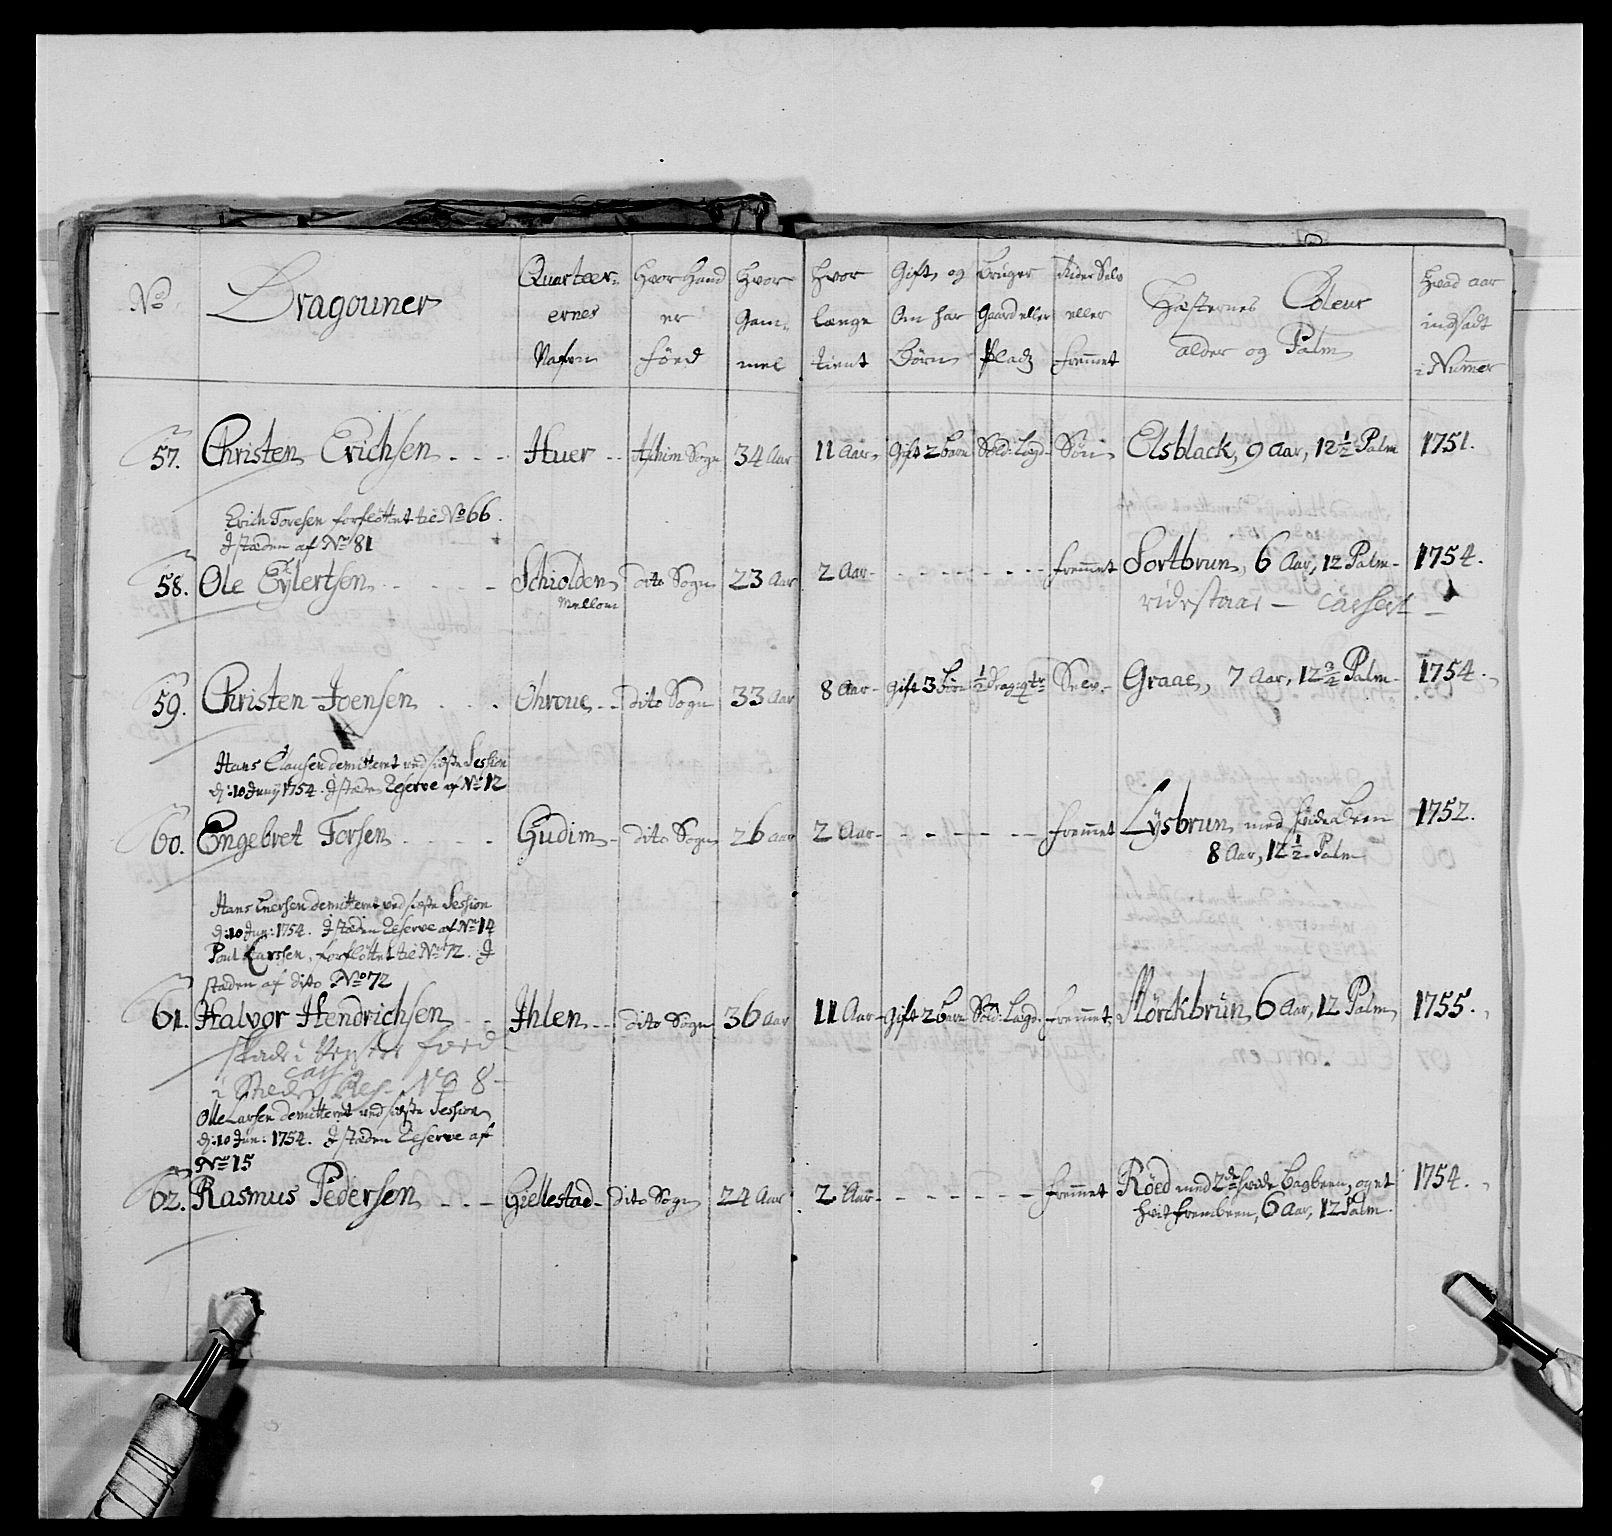 No
Dragouner
Quarteer-
ernes
Nafvn
Hvor Hand
er
föed
Hvor
Gam-
mel
Hvor
længe
tient
Gift, og
Om har
Börn
Bruger
Gaard eller
Pladz
Rider Selv
eller
fremmet
Hæsternes Coleur
alder og Palm
Hvad aar
indsadt
i Nummer
57. Christen Erichsen Huer Aschim Sogn 34 Aar 11 Aar Gift 2 Barn Sold: Lægd Elsblack, 9 Aar, 12 1/2 Palm 1751.
Erich Toresen forflöttet til No 66.
I stæden af No 81
58. Ole Eylertsen Schiolden dito Sogn 23 Aar 2 Aar fremmet Sortbrun, 6 Aar, 12 Palm 1754.
Mellom
59. Christen Joensen Ohroue dito Sogn 33 Aar 8 Aar Gift 3 Börn 1/2 Drag: qtr Selv Graae, 7 Aar, 12 3/4 Palm 1754.
Hans Clausen demitteret ved siste Session
d: 10 Juny 1754. I stæden Reserve af No 12
60. Engebret Torsen Gudim dito Sogn 26 aar 2 Aar fremmet Lysbrun, med hvide Been 1752.
8 Aar, 12 1/2 Palm
Hans Iversen demitteret ved siste Session
d: 10 Jun: 1754. I stæden Reserve af No 14
Poul Larssen, forflöttet til No 72. I
stæden af dito No 72
61. Halvor Hendrichsen Ihlen dito Sogn 36 Aar 11 Aar Gift 2 Barn Sold: Lægd fremmet Mörckbrun, 6 Aar, 12 Palm 1755.
skade i Venster foed
Cass
i Stæden Res. No 8
Olle Larsen demitteret ved siste Session
d: 10 Jun: 1754. I stæden Reserve af
No 15
62. Rasmus Pedersen Giellestad dito Sogn 24 Aar 2 Aar fremmet Röed med 2de hvide Bagbeen, og et 1754.
hvit frembeen, 6 Aar, 12 Palm.